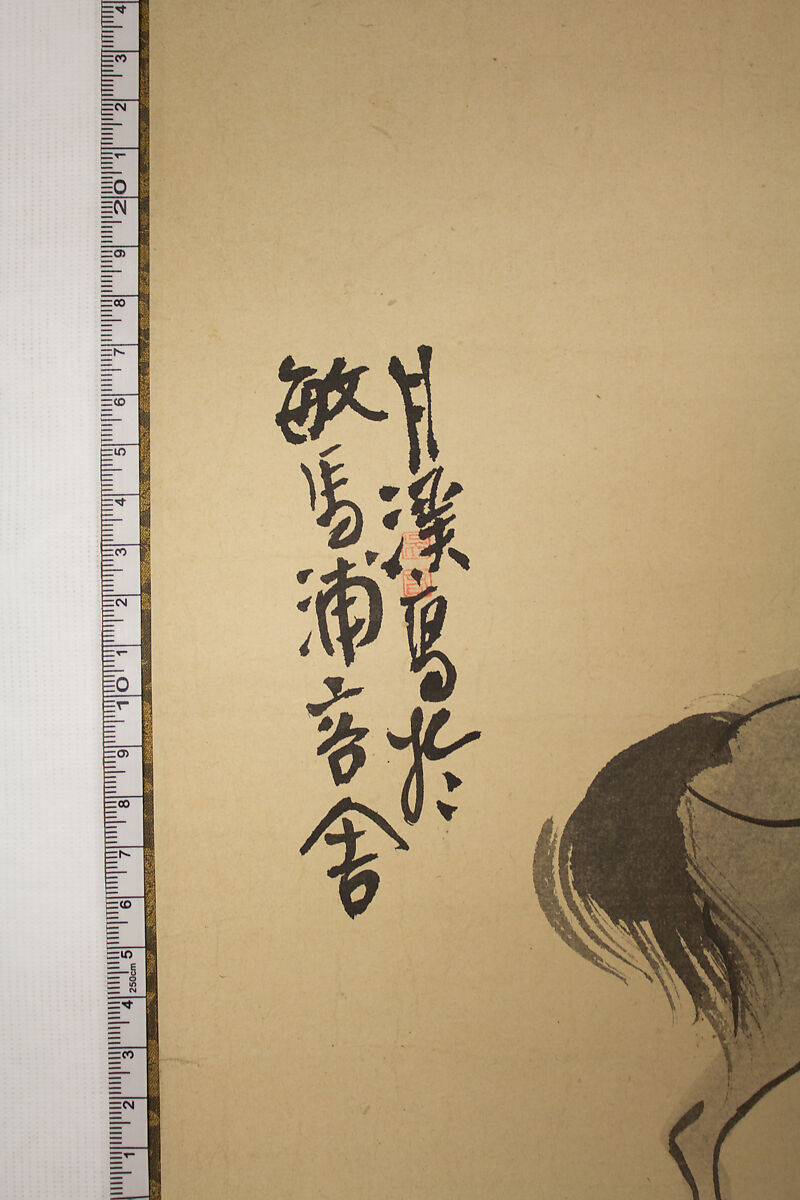 月溪寫於
敏馬浦客舎
1 2 3 4 5 6 7 8 9 10 1 2 3 4 5 6 7 8 9 20 1 2 3 4
250cm